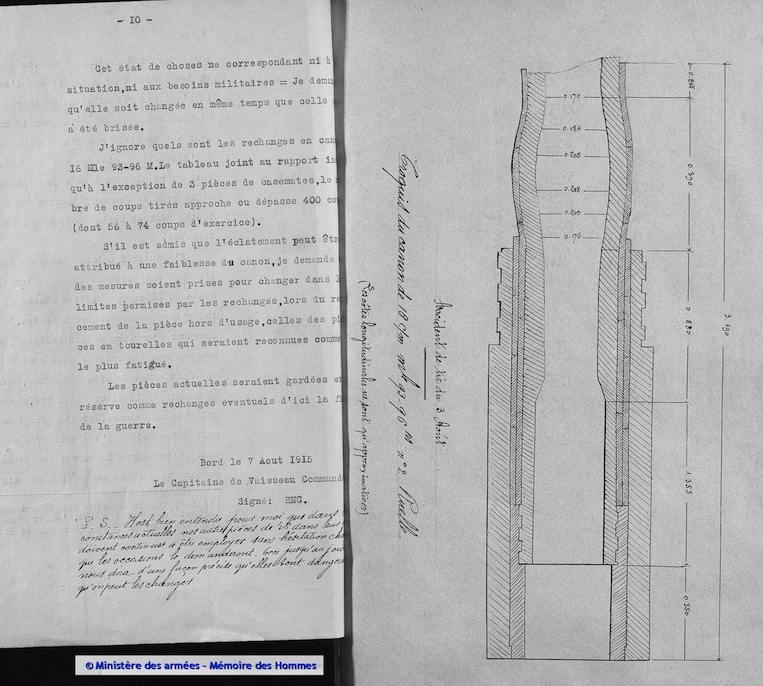 - IO -
Cet état de choses ne correspondant ni à
situation, ni aux besoins militaires = Je dema
qu'elle soit changée en même temps que celle
a été brisée.
J'ignore quels sont les rechanges en can
I6 Mle 93-96 M.Le tableau joint au rapport in
qu'à l'exception de 3 pièces de casemates, le
bre de coups tirés approche ou dépasse 400 co
(dont 56 à 74 coups d'exercice).
S'il est admis que l'éclatement peut êtr
attribué à une faiblesse du canon, je demande
des mesures soient prises pour changer dans l
limites permises par les rechanges, lors du re
cement de la pièce hors d'usage, celles des pi
ces en tourelles qui seraient reconnues comme
le plus fatigué.
Les pièces actuelles seraient gardées e
réserve comme rechanges éventuels d'ici la f
de la guerre.
Bord le 7 Aout I9I5
Le Capitaine de Vaisseau Command
Signé: ENG.
P. S. _ Il est bien entendu pour moi que dans
constances actuelles nos autres pièces de dans leur
doivent continuer à être employées sans hésitation
que les occasions le demanderont, ceci jusqu'au jou
nous dira d'une façon précise qu'elles sont danger
qu'on peut les changer
Accident de tir du 3 Août
Croquis du canon de 16 c/m Mle 93-96 Ruelle
(Les côtes longitudinales ne sont qu'approximatives)
0.170
0.184
0.205
0.208
0.200
0.175
0.390
0.880
1.355
0.350